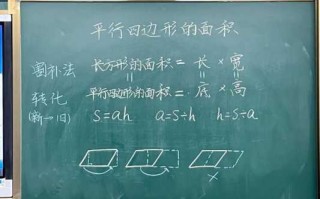 平行四边形的面积
割补法
长方形的面积 = 长 × 宽
转化
(新→旧)
平行四边形的面积 = 底 × 高
S=ah a=S÷h h=S÷a